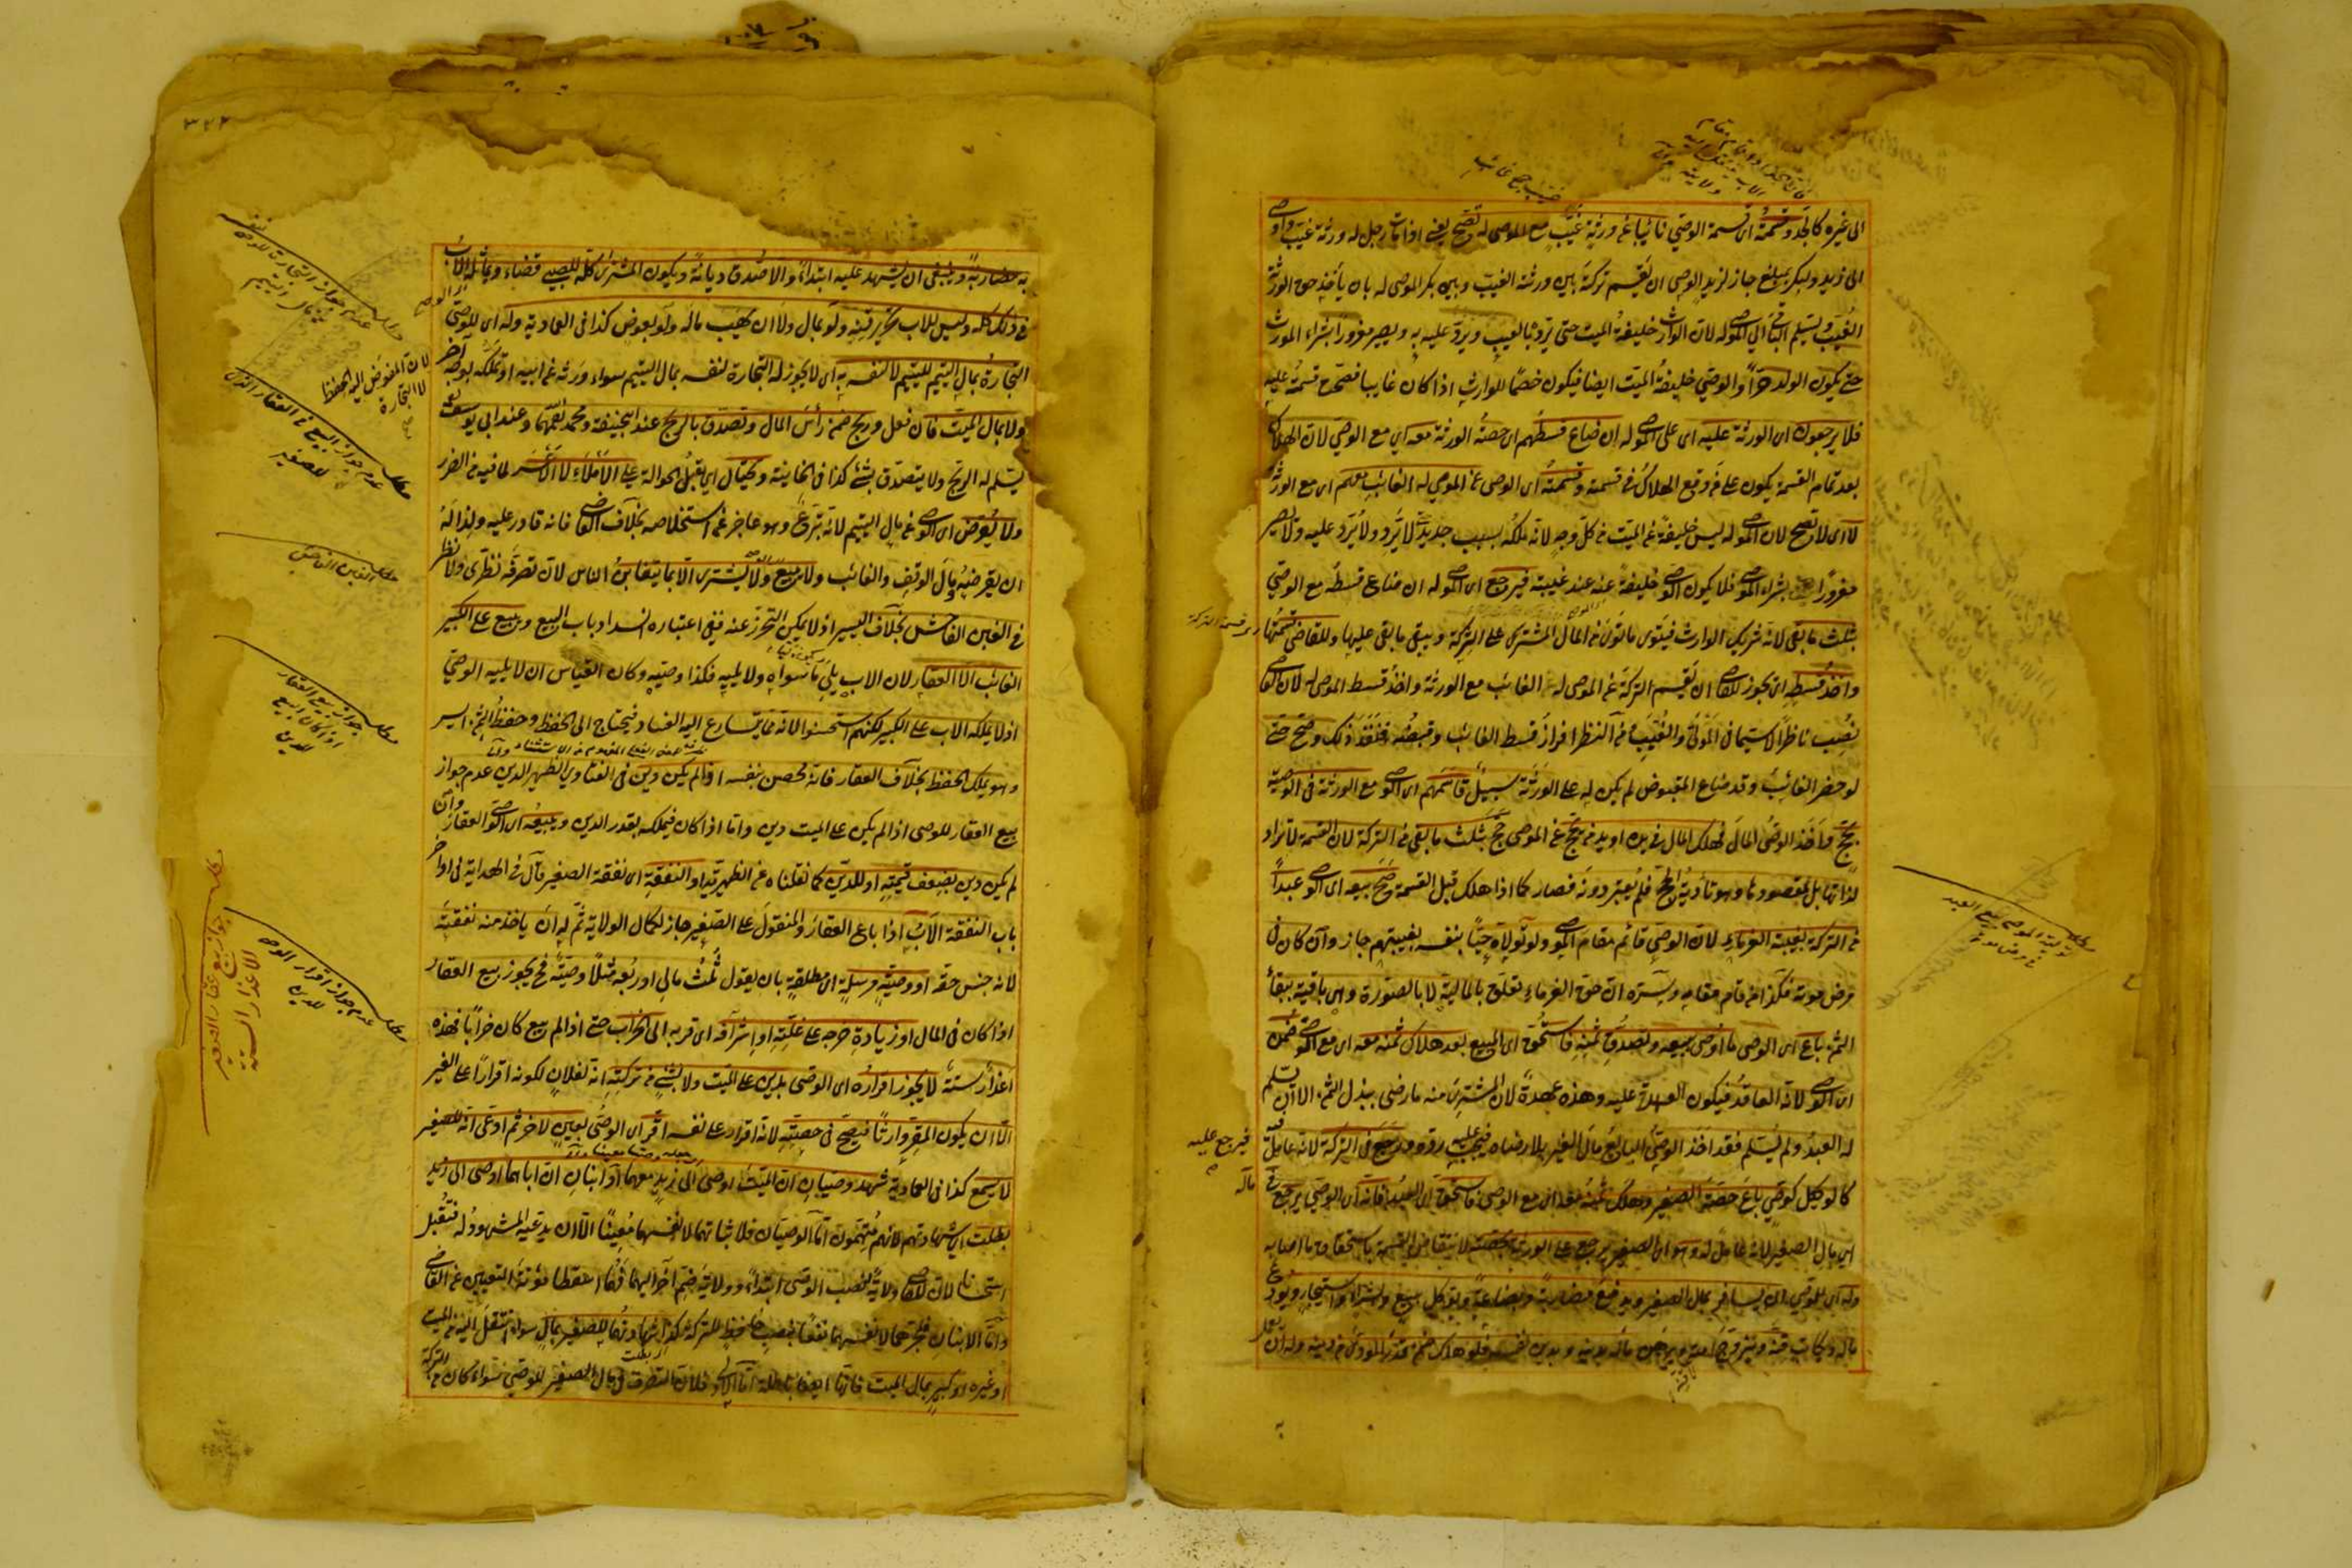 الى غيره كالجد وقسمته اى قسمة الوصي نائبا عن ورثة غيب مع الموصى له تصح يعنى اذا مات رجل له ورثة غيب واوصى
الى زيد ولبكر بمبلغ جاز لزيد الوصى ان يقسم تركته بين ورثته الغيب وبين بكر الموصى له بان يأخذ حق الورثة
الغيب ويسلم الباقى الى الموصى له لان الوارث خليفة الميت حتى يرد بالعيب ويرد عليه به ويصير مغرورا بشراء المورث
حتى يكون الولد حرا والوصى خليفة الميت ايضا فيكون خصما للوارث اذا كان غايبا فصح قسمته عليه
فلا يرجعون اى الورثة عليه اى على الموصى له ان ضاع قسطهم اى حصة الورثة معه اي مع الوصى لان الهلاك
بعد تمام القسمة يكون على من وقع الهلاك في قسمته وقسمته اى الوصى عن الموصى له الغائب معهم اى مع الورثة
لا اى لا تصح لان الموصى له ليس خليفة عن الميت من كل وجه لانه ملكه بسبب جديد لا يرد ولا يرد عليه ولا يصير
مغرورا بشراء الموصى فلا يكون الوصى خليفة عنه عند غيبته فيرجع اى الموصى له ان ضاع قسطه مع الوصى
بثلث ما بقى لانه شريك الوارث فيتوى ما توى من المال المشترك على الشركة ويبقى ما بقى عليها وللقاضى قسمتها
واخذ قسطه اى يجوز للقاضى ان يقسم التركة عن الموصى له الغائب مع الورثة واخذ قسط الموصى له لان القاضى
نصب ناظرا لا سيما فى الموتى والغيب ومن النظر افراز قسط الغائب وقبضه فنفذ ذلك وصح حتى
لو حضر الغائب وقد ضاع المقبوض لم يكن له على الورثة سبيل قاسمهم اى الوصى مع الورثة فى الوصية
بحج واخذ الوصى المال فهلك المال فى يده او يد من يحج عن الموصى حج بثلث ما بقى من التركة لان القسمة لا تراد
لذاتها بل لمقصودها وهو تأدية الحج فلم يعتبر دونه فصار كما اذا هلك قبل القسمة وصح بيعه اى الوصى عبدا
من التركة بغيبة الغرماء لان الوصى قائم مقام الموصى ولو تولاه حيا بنفسه بغيبتهم جاز وان كان فى
مرض موته فكذا من قام مقامه وسره ان حق الغرماء تعلق بالمالية لا بالصورة وهى باقية ببقاء
الثمن باع اى الوصى ما اوصى ببيعه وتصدق ثمنه فاستحق اى المبيع بعد هلاك ثمنه معه اى مع الوصى ضمن
اى الوصى لانه العاقد فيكون العهدة عليه وهذه عهدة لان المشترى منه ما رضى ببذل الثمن الا ان يسلم
له العبد ولم يسلم فقد اخذ الوصى البايع مال الغير بلا رضاه فيجب عليه رده ورجع فى التركة لانه عامل
كالوكيل كوصى باع حصة الصغير وهلك ثمنه معه اى مع الوصى فاستحق اى العبد فانه اى الوصى يرجع
اى مال الصغير لانه عامل له وهو اى الصغير يرجع على الورثة بحصته لانتقاض القسمة باستحقاق ما اصابه
وله اى للوصى ان يسافر بمال الصغير ويدفع مضاربة وبضاعة ويوكل ببيع وشراء واستيجار ويودع
ماله ويكاتب قنه ويزوج امته ويرهن ماله بدينه وبدين نفسه فلو هلك ضمن قدر المودى من دينه وله ان
فيرجع عليه
٣٢٢
به مضاربة وينبغى ان يشهد عليه ابتداء والا صدق ديانة ويكون المشترى كله للصبى قضاء ويماثله الاب
فى ذلك كله وليس للاب تحرير قنه ولو بمال ولا ان يهب ماله ولو بعوض كذا فى العمادية وله اى للوصى
التجارة بمال اليتيم لليتيم لا لنفسه به اى لا يجوز له التجارة لنفسه بمال اليتيم سواء ورثه عن ابيه او تملكه بوجه آخر
ولا بمال الميت فان فعل وربح ضمن رأس المال وتصدق بالربح عند ابيحنيفة ومحمد رحمهما وعند ابى يوسف
يسلم له الربح ولا يتصدق بشئ كذا فى الخانية ويحتال اي يقبل الحوالة على الاملاء لا الاعسر لما فيه من الضرر
ولا يقرض اى الوصى من مال اليتيم لانه تبرع وهو عاجز عن استخلاصه بخلاف القاضى فانه قادر عليه ولذا له
ان يقرضه ومال الوقف والغائب ولا يبيع ولا يشترى الا بما يتغابن الناس لان تصرفه نظرى ولا نظر
فى الغبن الفاحش بخلاف اليسير اذ لا يمكن التحرز عنه ففى اعتباره انسداد باب البيع ويبيع على الكبير
الغائب الا العقار لان الاب يلى ما سواه ولا يليه فكذا وصيه وكان القياس ان لا يليه الوصى
اذ لا يملكه الاب على الكبير لكنهم استحسنوا لانه مما يتسارع اليه الفساد فيحتاج الى الحفظ وحفظ الثمن ايسر
وهو يملك الحفظ بخلاف العقار فانه محصن بنفسه اذا لم يكن دين فى الفتاوى الظهير الدين عدم جواز
بيع العقار للوصى اذا لم يكن على الميت دين واما اذا كان فيملكه بقدر الدين ويبيعه اى الوصى العقار وان
لم يكن دين بضعف قيمته او للدين كما نقلناه عن الظهيرية او النفقة اى نفقة الصغير قال فى الهداية فى اواخر
باب النفقة الاب اذا باع العقار والمنقول على الصغير جاز لكمال الولاية ثم له ان ياخذ منه نفقته
لانه جنس حقه او وصية مرسلة اى مطلقة بان يقول ثلث مالى او ربعه مثلا وصية فح يجوز بيع العقار
اذا كان فى المال او زيادة خرجه على غلته او اشرافه اى قربه الى الخراب حتى اذا لم يبع كان خرابا فهذه
اعذار ستة لا يجوز اقراره اى الوصى بدين على الميت ولا بشئ من تركته انه لفلان لكونه اقرارا على الغير
الا ان يكون المقر وارثا فيصح فى حصته لانه اقرار على نفسه اقر اى الوصى بعين لآخر ثم ادعى انه للصغير
لا يسمع كذا فى العمادية شهد وصيان ان الميت اوصى الى زيد معهما او ابنان ان اباهما اوصى الى زيد
بطلت اى شهادتهم لانهم متهمون اما الوصيان فلاثباتهما لانفسهما معينا الا ان يدعيه المشهود له فتقبل
استحسانا لان للقاضى ولاية نصب الوصى ابتداء وولاية ضم آخر اليهما فهما اسقطا مؤنة التعيين عن القاضى
واما الابنان فلجرهما لانفسهما نفعا بنصب حافظ للتركة كذا شهادتهما للصغير بمال سواء انتقل اليه من الميت
او غيره او كبير بمال الميت فانها ايضا باطلة اما الاول فلان التصرف فى مال الصغير للوصى سواء كان من التركة
عدم جواز التجارة للوصى
بمال اليتيم
لان المفوض اليه الحفظ
لا التجارة
الغبن الفاحش
جواز بيع العقار
اذا كان البيع
للدين
عدم جواز اقرار الوصى
للدين